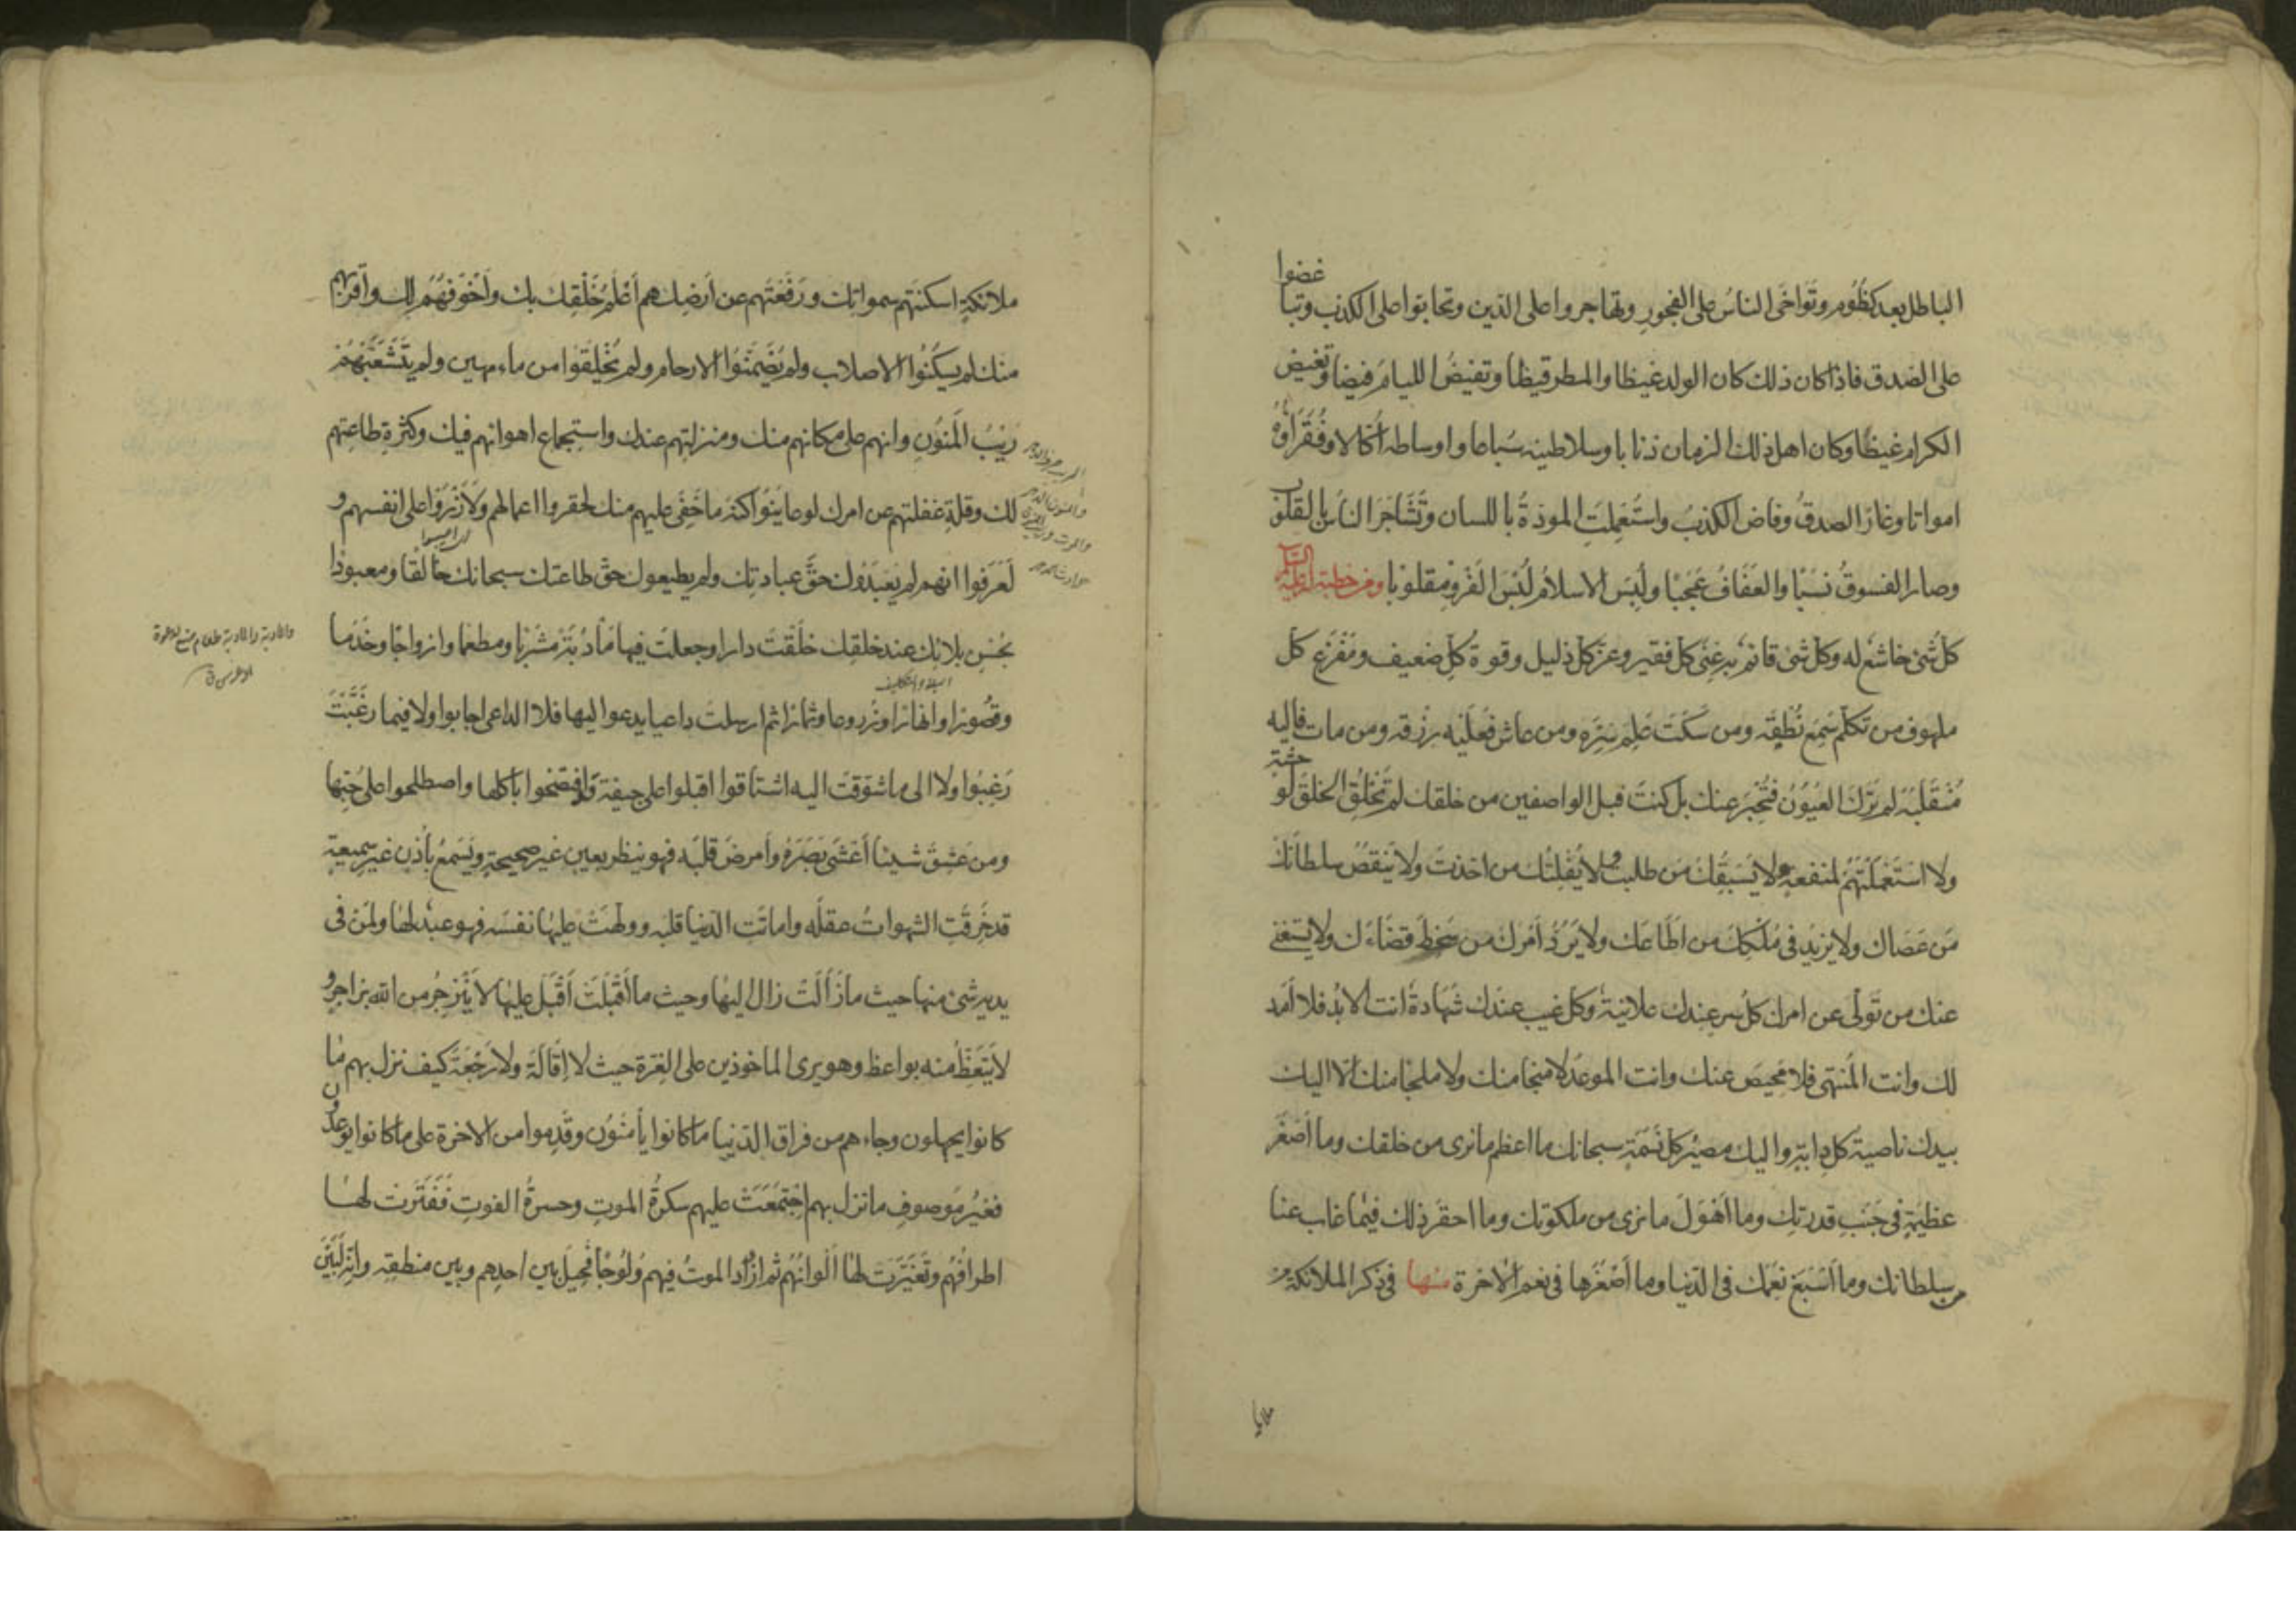 الباطل بعد كظوم وتَوَاخَى الناسُ على الفجورِ وتهاجروا على الدين وتحابوا على الكذب وتباغضوا
على الصدق فاذا كان ذلك كان الولد غيظا والمطر قيظا وتفيضُ الليامُ فيضا وتغيض
الكرام غيضا وكان اهل ذلك الزمان ذئابا وسلاطينه سباعا واوساطه اُكّالا وفُقَراؤهُ
امواتا وغارَ الصدقُ وفاض الكذبُ واستُعمِلَتِ المودةُ باللسان وتَشَاجَرَ الناسُ بالقلوب
وصار الفسوقُ نسبًا والعَفَافُ عَجَبًا ولُبِسَ الاسلامُ لُبْسَ الفَرْوِ مقلوبًا ومن خطبة له عليه السلم
كل شئ خاشع له وكل شئ قائم به غِنَى كل فقير وعز كل ذليل وقوة كل ضعيف ومَفْزَع كل
ملهوف من تكلم سَمِعَ نُطْقَه ومن سَكَتَ عَلِمَ سِرَّه ومن عاش فعَلَيْه رزقه ومن مات فاليه
مُنْقَلَبُه لم تَرَك العُيُونُ فتُخْبِرَ عنك بل كنتَ قبل الواصفين من خلقك لم تَخْلُقِ الخلقَ لوحشة
ولا استَعْمَلْتَهُمْ لمنفعة ولا يَسْبِقُك مَن طلبت ولا يُفْلِتُك من اخذتَ ولا يَنقصُ سلطانَك
مَن عَصَاك ولا يزيد في مُلْكِكَ من اَطَاعَك ولا يَرُدُّ أمرَك من سَخِطَ قضاءَك ولا يستغني
عنك من تَوَلَّى عن امرك كلُّ سرٍ عندك علانيةٌ وكل غيب عندك شهادةٌ انت الابد فلا اَمَد
لك وانت المُنتهى فلا مَحِيصَ عنك وانت الموعد لا منجا منك ولا ملجا منك الّا اليك
بيدك ناصية كل دابة واليك مصيرُ كل نَسَمَةٍ سبحانك ما اعظم ما نرى من خلقك وما اَصْغَرَ
عظيمَةٍ في جَنْبِ قدرتِك وما اَهْوَلَ ما نرى من ملكوتك وما احقرَ ذلك فيما غاب عنا
من سلطانك وما اَسْبَغَ نِعَمَك في الدنيا وما أصْغَرَها في نعم الاخرة منها في ذكر الملائكة من
ملائكةٍ اسكنتَهم سمواتك ورَفَعْتَهم عن اَرضِك هم أَعْلَمُ خَلْقِك بك وأَخْوَفُهُم لك واَقْرَبُهم
منك لم يسكُنُوا الاصلاب ولم يُضَمَّنُوا الارحام ولم يُخْلَقُوا من ماء مهين ولم يتَشَعَّبْهُمْ
رَيْبُ المَنُوْنِ وانهم على مكانهم منك ومنزلتِهم عندك واستِجماعِ اهوائهم فيك وكثرةِ طاعتهم
لك وقلةِ غفلتهم عن امرك لو عاينوا كنهَ ما خَفِىَ عليهم منك لحقروا اعمالهم ولَاَزْرَوْا على انفسهم و
لَعَرَفوا انهم لم يَعبُدُوك حقَّ عبادتِك ولم يطيعوك حقَّ طاعتك سبحانك خالقا ومعبودا
بحُسْنِ بلائك عند خلقك خَلَقْتَ دارا وجعلتَ فيها مَأْدُبَةً مَشْرَبا ومطعما وازواجًا وخَدَما
وقصُورًا وانهارًا وزروعا وثمارًا ثم ارسلتَ داعيا يدعوا اليها فلا الداعى اجابوا ولا فيما رغَّبْتَ
رَغِبُوا ولا الى ما شوقتَ اليه اشتاقوا اقبلوا على جيفة وافتضحوا باكلها واصطلحوا على حُبّها
ومن عَشِقَ شيئا أعْشَى بَصَرَهُ وأمرضَ قلبَه فهو ينظر بعين غير صحيحةٍ ويَسْمَعُ بأُذنٍ غيرِ سميعةٍ
قد خَرَقَتِ الشهواتُ عقلَه واماتَتِ الدنيا قلبَه وولهَتْ عليها نفسَه فهو عبدٌ لها ولمَن في
يديه شئ منها حيث ما زَالَتْ زال اليها وحيث ما أقْبَلَتْ أقْبَلَ عليها لا يَنْزَجِرُ من الله بزاجرٍ و
لا يَتَّعِظُ منه بواعظ وهو يرى الماخوذين على الغِرَّةِ حيث لا إقَالَةَ ولا رَجْعَةَ كيف نزل بهم ما
كانوا يجهلون وجاءهم من فراق الدنيا ما كانوا يأمَنُوْن وقَدِموا من الاخرة على ما كانوا يوعدون
فغيرُ مَوصوفٍ ما نزل بهم اِجْتَمَعَتْ عليهم سكرةُ الموتِ وحسرةُ الفوتِ فَفَتَرَتْ لها
اطرافُهُم وتَغَيَّرَت لها اَلْوانُهُم ثم ازدادَ الموتُ فيهم وُلُوْجًا فحِيلَ بين احدِهم وبين منطقِه وانه لَبَيْنَ